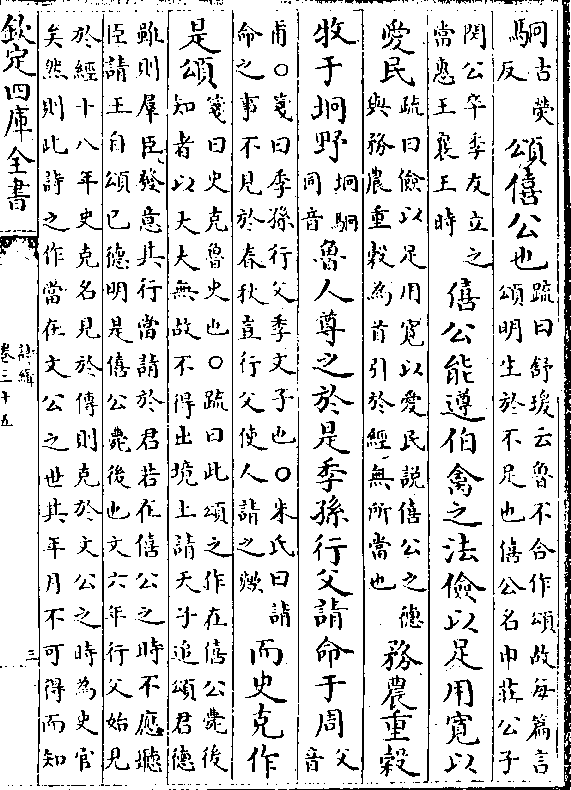 駉古熒反
頌僖公也
疏曰舒瑗云魯不合作頌故每篇言
頌明生於不足也僖公名申莊公子
閔公卒季友立之
當惠王襄王時
僖公能遵伯禽之法儉以足用寬以
愛民
疏曰儉以足用寬以愛民說僖公之德
與務農重穀為首引於經無所當也
務農重穀
牧于坰野
坰駉
同音
魯人尊之於是季孫行父請命于周
父
音
甫○箋曰季孫行父季文子也○朱氏曰請
命之事不見於春秋豈行父使人請之歟
而史克作
是頌
箋曰史克魯史也○疏曰此頌之作在僖公薨後
知者以大夫無故不得出境上請天子追頌君德
雖則羣臣發意其行當請於君若在僖公之時不應聽
臣請王自頌己德明是僖公薨後也文六年行父始見
於經十八年史克名見於傳則克於文公之時為史官
矣然則此詩之作當在文公之世其年月不可得而知
欽定四庫全書
詩緝
卷三十五
三